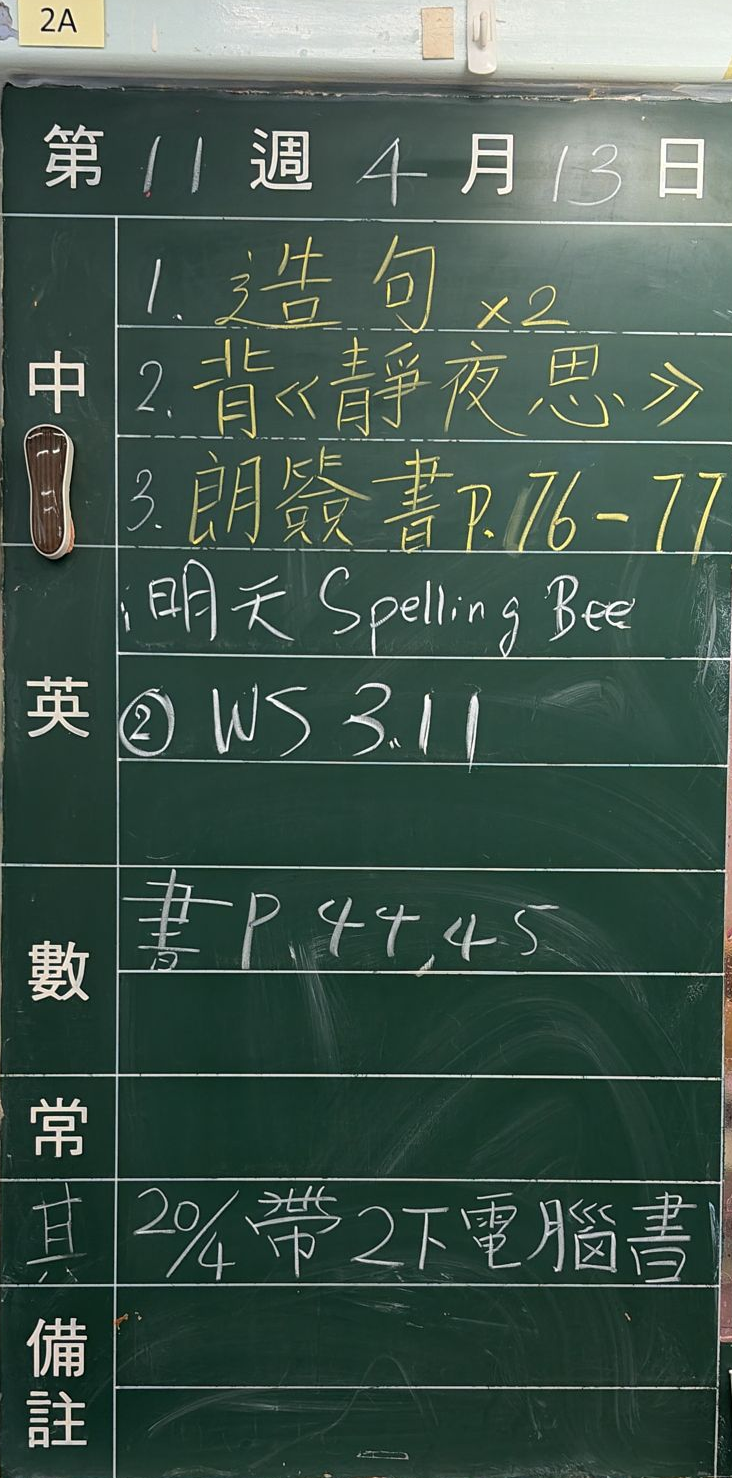 2A
第 11 週 4 月 13 日
中
1. 造句 ×2
2. 背《靜夜思》
3. 朗簽書P.76-77
英
明天 Spelling Bee
② WS 3.11
數
書 P 44,45
常
其
20/4 帶2下電腦書
備註